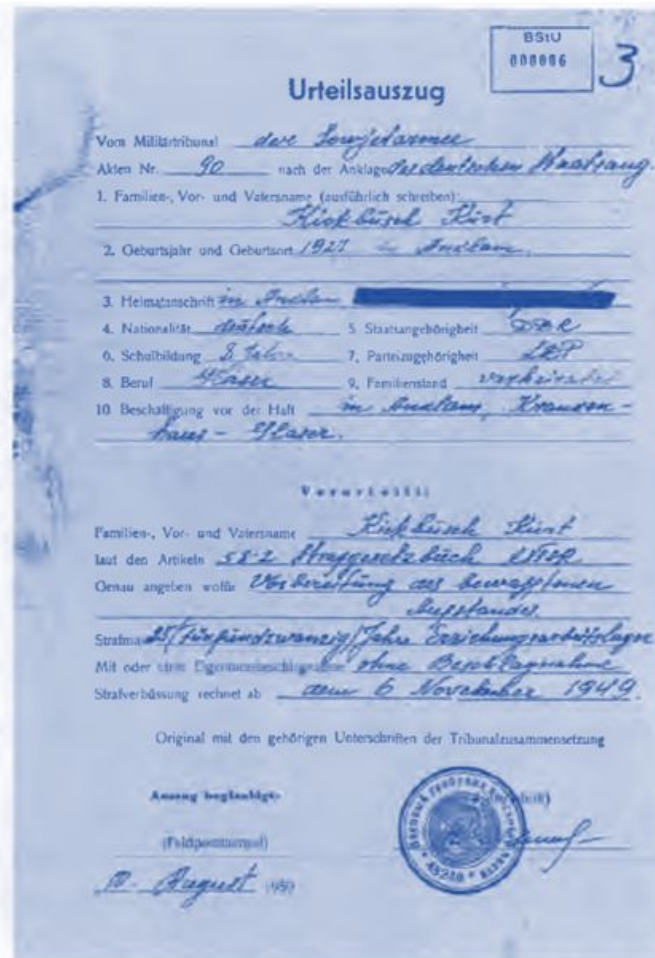 BStU
000006
3
Urteilsauszug
Vom Militärtribunal der Sowjetarmee
Akten Nr. 90 nach der Anklage des deutschen
1. Familien-, Vor- und Vatersname (ausführlich schreiben):
Kieckbusch Kurt
2. Geburtsjahr und Geburtsort 1927 in Anklam.
3. Heimatanschrift in Anklam
4. Nationalität deutsch 5. Staatsangehörigkeit DDR
6. Schulbildung 8 Jahre 7. Parteizugehörigkeit
8. Beruf Glaser 9. Familienstand verheiratet
10. Beschäftigung vor der Haft in Anklam, Kranken-
haus - Glaser.
Verurteilt:
Familien-, Vor- und Vatersname Kieckbusch Kurt
laut den Artikeln 58-2 Strafgesetzbuch
Genau angeben wofür Vorbereitung des bewaffneten
Aufstandes.
Strafmaß 25/fünfundzwanzig/Jahre Erziehungsarbeitslager
Mit oder ohne Eigentumsbeschlagnahme ohne Beschlagnahme
Strafverbüssung rechnet ab dem 6 November 1949.
Original mit den gehörigen Unterschriften der Tribunalzusammensetzung
Auszug beglaubigt:
(Feldpostnummer)
10. August 1950